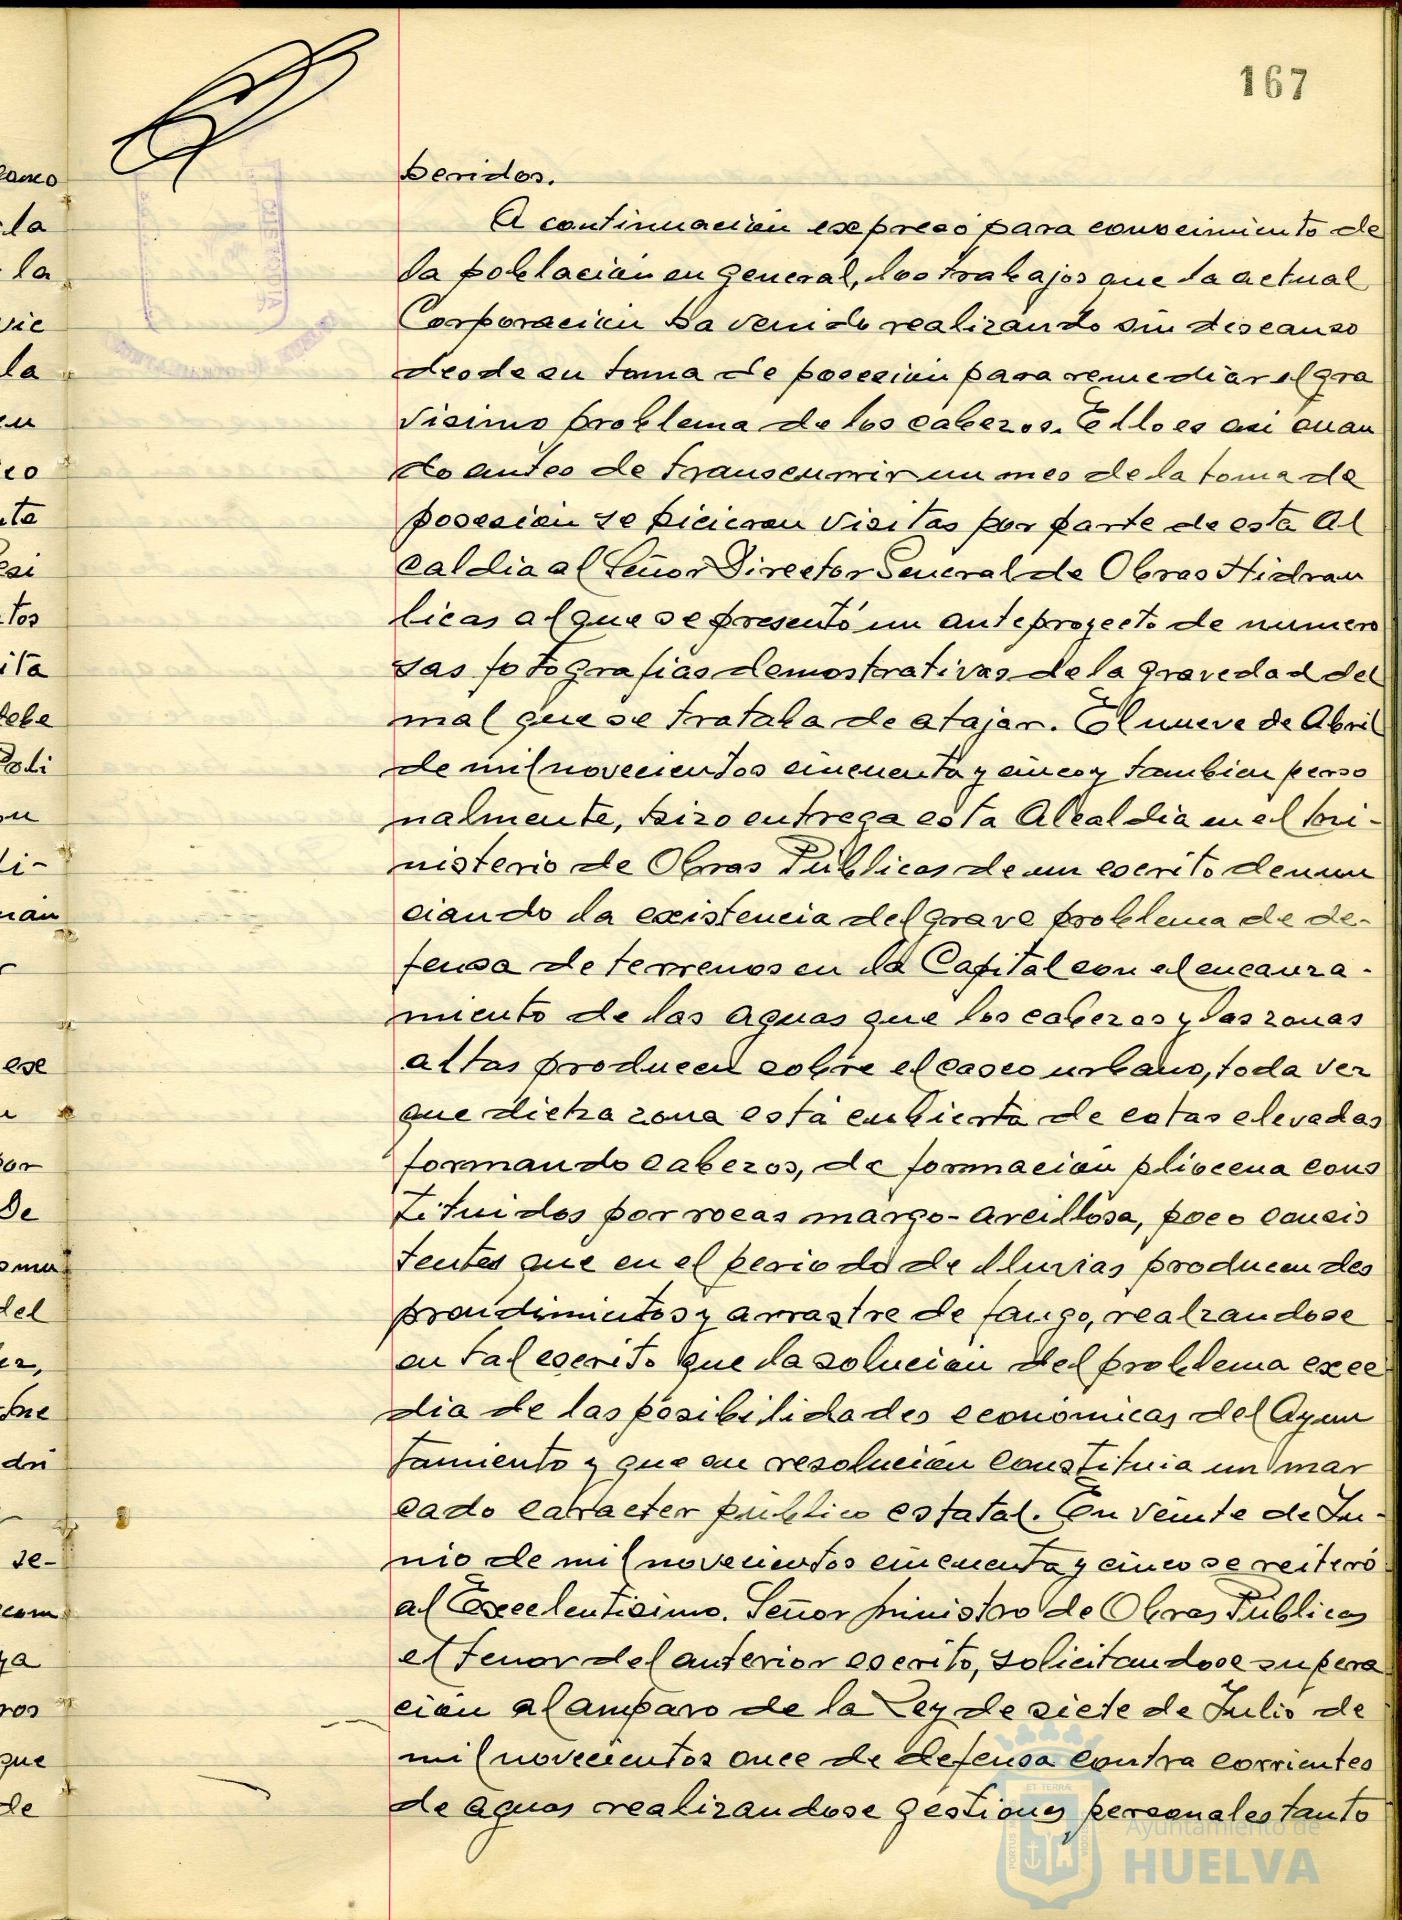 167
heridos.
A continuación expresó para conocimiento de
la población en general, los trabajos que la actual
Corporación ha venido realizando sin descanso
desde su toma de posesión para remediar el gra
visimo problema de los cabezos. Ello es asi cuan
do antes de transcurrir un mes de la toma de
posesión se hicieron visitas por parte de esta Al
caldia al Señor Director General de Obras Hidrau
licas al que se presentó un anteproyecto de numero
sas fotografias demostrativas de la gravedad del
mal que se trataba de atajar. El nueve de Abril
de mil novecientos cincuenta y cinco y tambien perso
nalmente, hizo entrega esta Alcaldia en el Mi-
nisterio de Obras Públicas de un escrito denun
ciando la existencia del grave problema de de-
fensa de terrenos en la Capital con el encauza-
miento de las aguas que los cabezos y las zonas
altas producen sobre el casco urbano, toda vez
que dicha zona está cubierta de cotas elevadas
formando cabezos, de formación pliocena cons
tituidos por rocas margo-arcillosa, poco consis
tentes que en el periodo de lluvias producen des
prendimientos y arrastre de fango, realzandose
en tal escrito que la solución del problema exce
dia de las posibilidades económicas del Ayun
tamiento y que su resolución constituia un mar
cado caracter público estatal. En veinte de Ju-
nio de mil novecientos cincuenta y cinco se reiteró
al Excelentisimo. Señor Ministro de Obras Públicas
el tenor del anterior escrito, solicitandose su pera
ción al amparo de la Ley de siete de Julio de
mil novecientos once de defensa contra corrientes
de aguas realizandose géstiones personales tanto
Ayuntamiento de
HUELVA